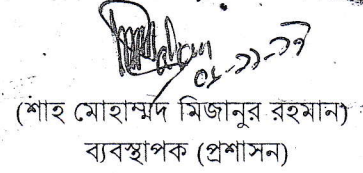 ০৮-১১-১৭
(শাহ মোহাম্মদ মিজানুর রহমান)
ব্যবস্থাপক (প্রশাসন)